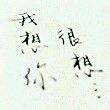 我想你
很想…